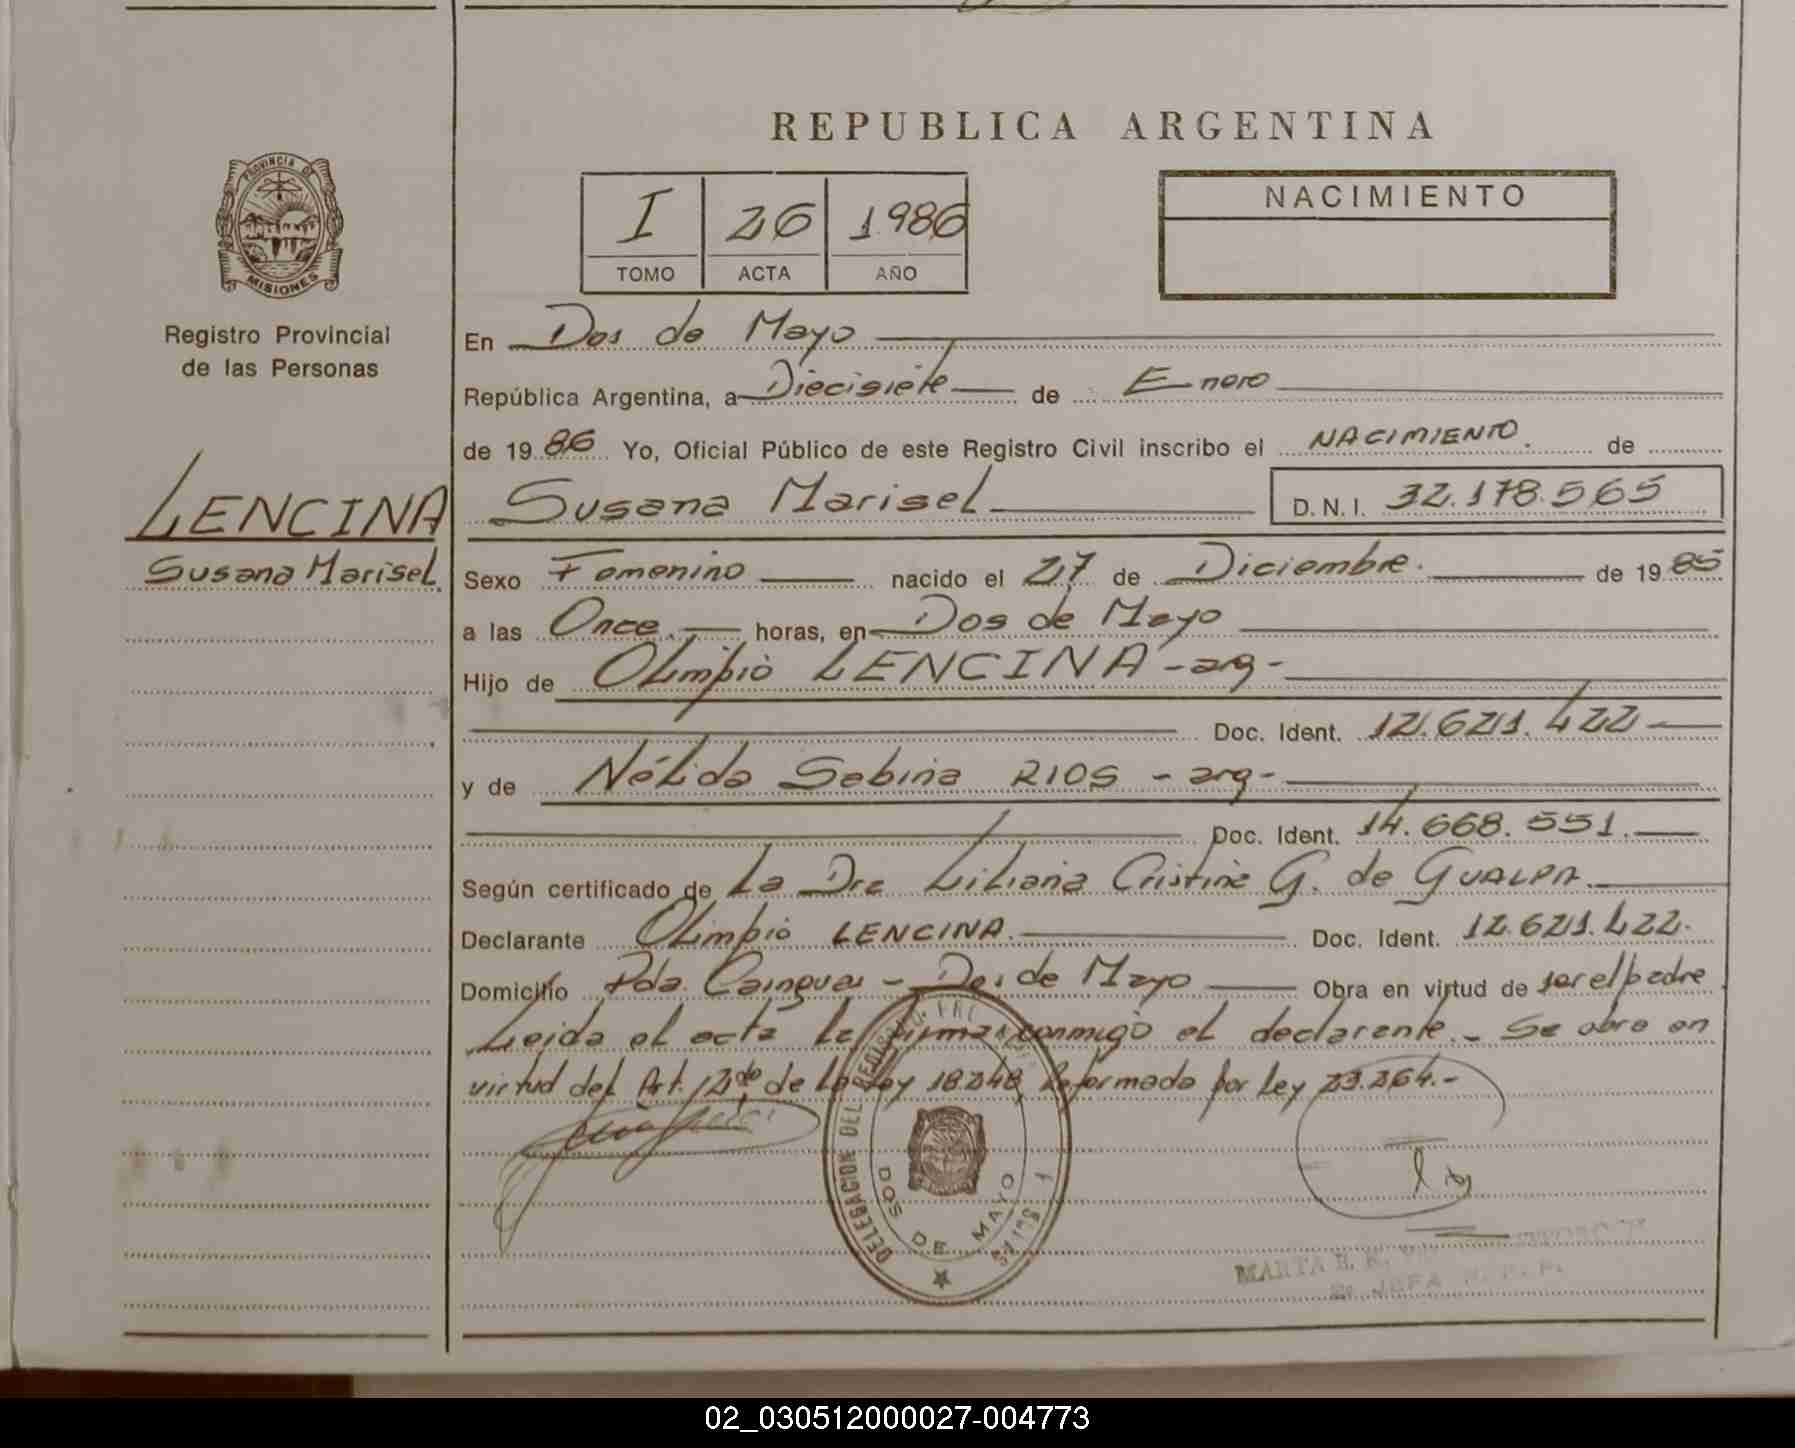 REPUBLICA ARGENTINA
PROVINCIA DE
MISIONES
Registro Provincial
de las Personas
LENCINA
Susana Marisel
I 26 1986
TOMO ACTA AÑO
NACIMIENTO
En Dos de Mayo
República Argentina, a Diecisiete de Enero
de 19 86 Yo, Oficial Público de este Registro Civil inscribo el NACIMIENTO. de
Susana Marisel D.N.I. 32.178.565
Sexo Femenino nacido el 27 de Diciembre. de 19 85
a las Once. horas, en Dos de Mayo
Hijo de Olimpio LENCINA - arg -
Doc. Ident. 12.621.422
y de Nélida Sabina RIOS - arg -
Doc. Ident. 14.668.551.
Según certificado de La Dra Liliana Cristina G. de GUALPA.
Declarante Olimpio LENCINA. Doc. Ident. 12.621.422.
Domicilio Pda. Cainguas - Dos de Mayo Obra en virtud de ser el padre
Leida el acta la firma conmigo el declarante. - Se obra en
virtud del Art. 12do de la Ley 18248 Reformada por Ley 23.264.-
DELEGACION DEL REGISTRO
DOS DE MAYO
MARTA
JEFA R. P. P.
02_030512000027-004773